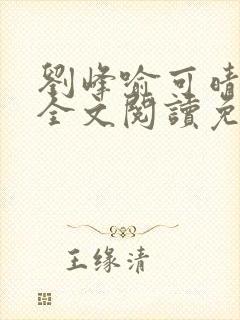 劉峰喻可晴
全文閱讀免
王缘清